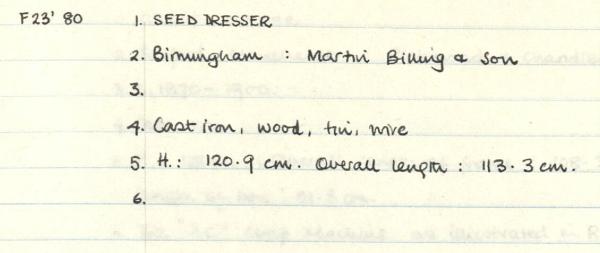 F23' 80 1. SEED DRESSER
2. Birmingham : Martin Billing & Son
3.
4. Cast iron, wood, tin, wire
5. H.: 120.9 cm. Overall length : 113.3 cm.
6.